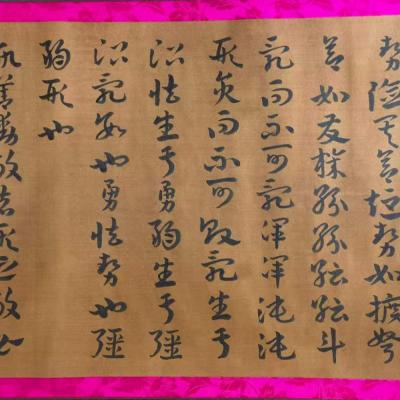 勢險其節短勢如彍弩
節如發機紛紛紜紜斗
亂而不可亂渾渾沌沌
形圓而不可敗亂生于
治怯生于勇弱生于彊
治亂數也勇怯勢也彊
弱形也
故善動敵者形之敵必